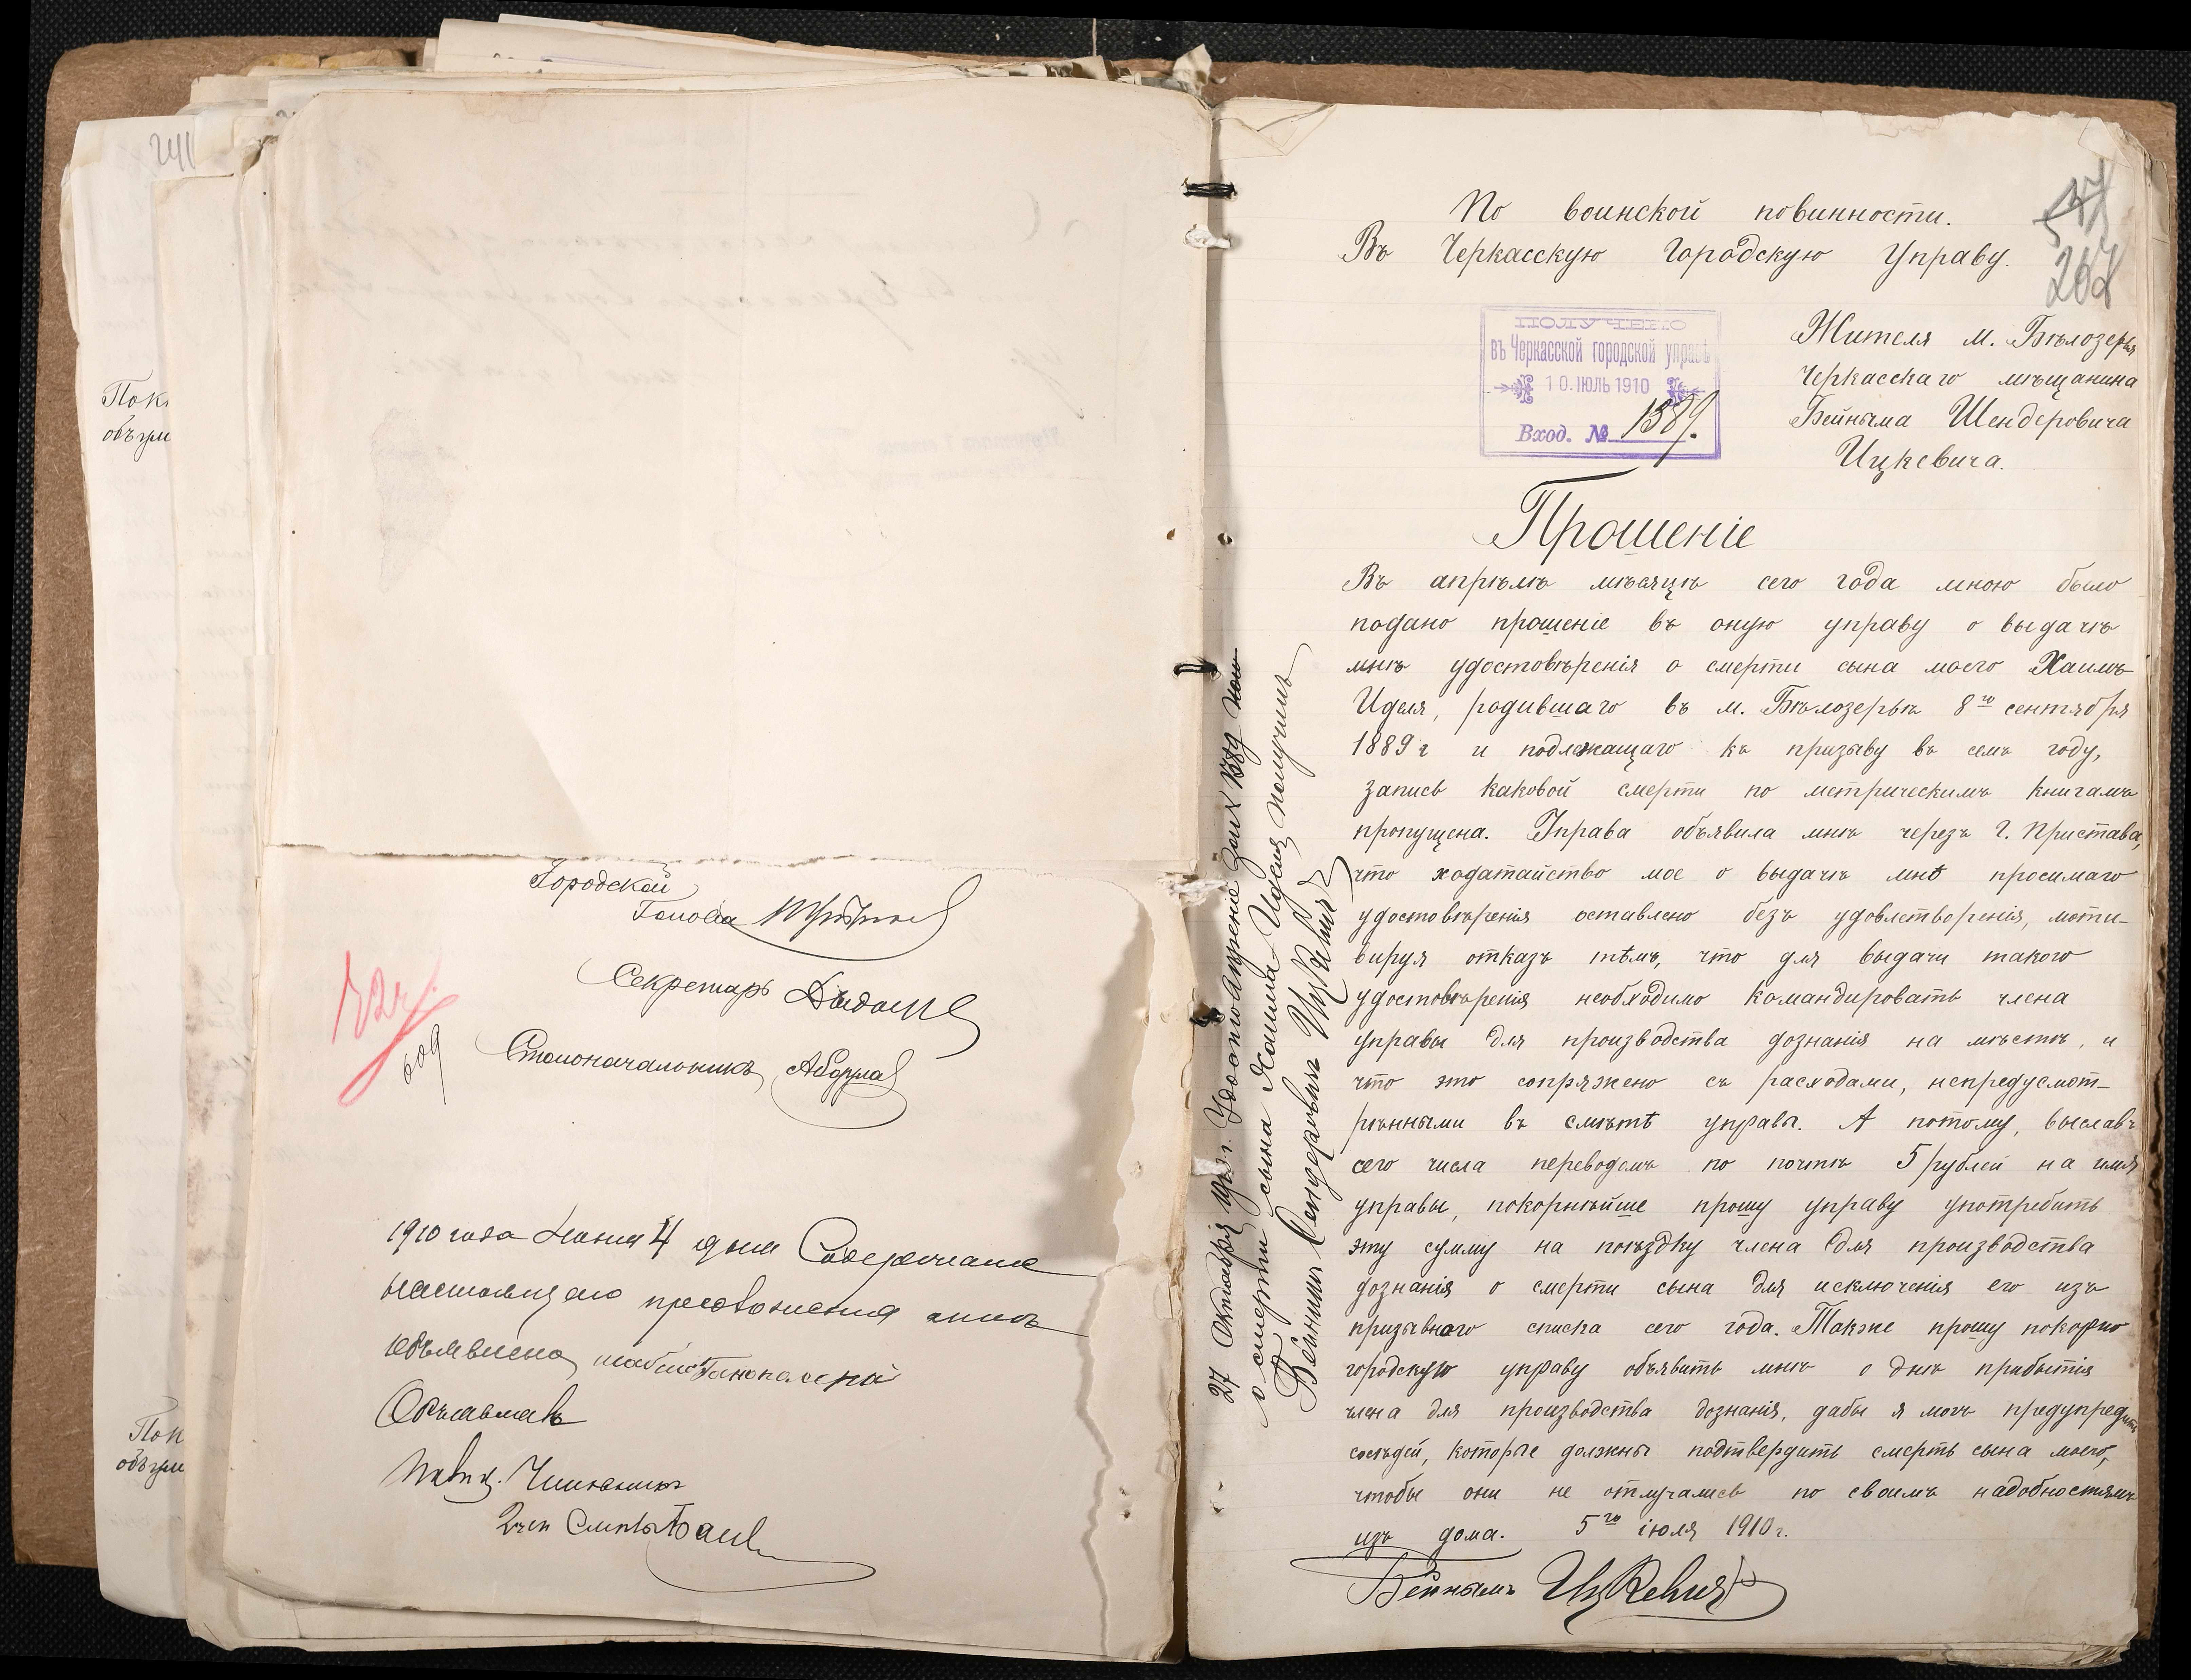 241
Покг
объяви
Пок
объяви
Городской
Голова
Секретарь
Столоначальникъ
609
1910 года Июня 4 дня Содержание
настоящаго предложения
объявлено
Объявлялъ
2 части
По воинской повинности.
Въ Черкасскую Городскую Управу.
267
ПОЛУЧЕНО
въ Черкасской городской управѣ
10. ІЮЛЬ 1910
Вход. № 1589.
Жителя м. Бѣлозерья
Черкасскаго мѣщанина
Бейныма Шендеровича
Ицкевича.
Прошеніе
Въ апрѣлѣ мѣсяцѣ сего года мною было
подано прошеніе въ оную управу о выдачѣ
мнѣ удостовѣренія о смерти сына моего Хаимъ
Иделя, родившаго въ м. Бѣлозерьѣ 8го сентября
1889 г и подлежащаго къ призыву въ семъ году,
запись каковой смерти по метрическимъ книгамъ
пропущена. Управа объявила мнѣ черезъ Г. Пристава,
что ходатайство мое о выдачѣ мнѣ просимаго
удостовѣренія оставлено безъ удовлетворенія, моти-
вируя отказъ тѣмъ, что для выдачи такого
удостовѣренія необходимо командировать члена
управы для производства дознанія на мѣстѣ, и
что это сопряжено съ расходами, непредусмот-
рѣнными въ смѣтѣ управы. А потому, выславъ
сего числа переводомъ по почтѣ 5 рублей на имя
управы, покорнѣйше прошу управу употребить
эту сумму на поѣздку члена для производства
дознанія о смерти сына для исключенія его изъ
призывного списка сего года. Также прошу покорно
городскую управу объявить мнѣ о днѣ прибытія
члена для производства дознанія, дабы я могъ предупредить
сосѣдей, которые должны подтвердить смерть сына моего,
чтобы они не отлучались по своимъ надобностямъ
изъ дома. 5го іюля 1910 г.
Бейнымъ Ицкевичъ
27 Октября 1910 г. Удостовѣреніе за № 1589
о смерти сына Хаима-Иделя получилъ
Бейнимъ Шендеровичъ Ицкевичъ